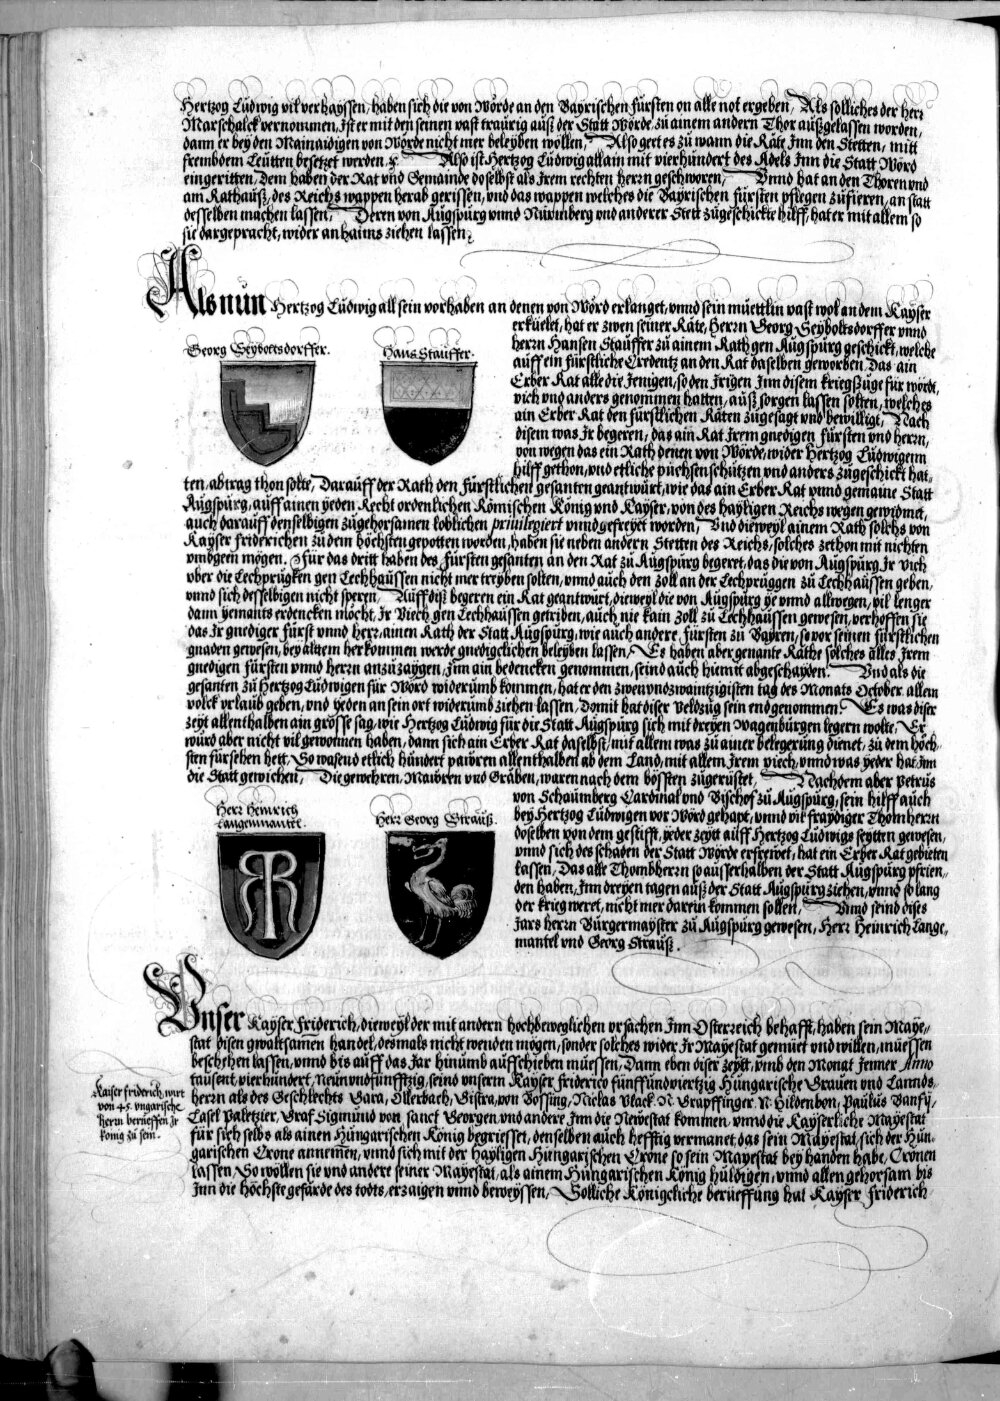 Hertzog Ludwig vil verhayssen, haben sich die von Wörde an den Bayrischen fürsten on alle not ergeben, Als solliches der herr
Marschalck vernommen, Ist er mit den seinen vast traurig auß der Statt Wörde, zu ainem andern Thor außgelassen worden,
dann er bey den Mainaidigen von Wörde nicht mer beleyben wöllen, Also geet es zu wann die Räte Inn den Stetten, mitt
frembdem Leütten besetzet werden, Also ist Hertzog Ludwig allain mit vierhundert des Adels Inn die Statt Wörd
eingeritten, Dem haben der Rat vnd Gemainde doselbst als Irem rechten herrn geschworen, Vnnd hat an den Thoren vnd
am Rathauß, des Reichs wappen herab gerissen, vnd das wappen welches die Bayrischen fürsten pflegen zufieren, an statt
desselben machen lassen, Deren von Augspurg vnnd Nürmberg vnd anderer Stett zugeschickte hilff, hat er mit allem so
sie dargepracht, wider anhaims ziehen lassen.
Als nun Hertzog Ludwig all sein vorhaben an denen von Wörd erlanget, vnnd sein müettlin vast wol an dem Kayser
erküelet, hat er zwen seiner Räte, Herrn Georg Seyboltsdorffer vnnd
herrn Hansen Stauffer zu ainem Rath gen Augspurg geschickt, welche
auff ein fürstliche Credentz an den Rat daselben geworben, Das ain
Erber Rat alle die Jenigen, so den Irigen Inn disem kriegßzuge für wördt,
vich vnd anders genommen hatten, auß sorgen lassen solten, welches
ain Erber Rat den fürstlichen Räten zugesagt vnd bewilligt, Nach
disem was Ir begeren, das ain Rat Irem gnedigen fürsten vnd herrn,
von wegen das ein Rath denen von Wörde, wider Hertzog Ludwigenn
hilff gethon, vnd etliche püchsenschützen vnd anders zugeschickt hat-
Georg Seyboltsdorffer.
Hans Stauffer.
ten, abtrag thon solte, Darauff der Rath den fürstlichen gesanten geantwürt, wie das ain Erber Rat vnnd gemaine Statt
Augspurg, auff ainen yeden Recht ordenlichen Römischen König vnd Kayser, von des hayligen Reichs wegen gewidmet,
auch darauff denselbigen zugehorsamen loblichen priuilegiert vnnd gefreyet worden, Vnd dieweyl ainem Rath solchs von
Kayser friderichen zu dem höchsten gepotten worden, haben sie neben andern Stetten des Reichs, solches zethon mit nichten
vmbgeen mögen. Für das dritt haben des fürsten gesanten an den Rat zu Augspurg begeret, das die von Augspurg Ir vich
vber die Lechprügken gen Lechhaussen nicht mer treyben solten, vnnd auch den zoll an der Lechpruggen zu Lechhaussen geben,
vnnd sich desselbigen nicht speren, Auff diß begeren ein Rat geantwurt, dieweyl die von Augspurg ye vnnd allwegen, vil lenger
dann yemants erdencken möcht, Ir Viech gen Lechhaussen getriden, auch nie kain Zoll zu Lechhaussen gewesen, verhoffen sie
das Ir gnediger fürst vnnd herr, ainen Rath der Statt Augspurg, wie auch andere fürsten zu Bayren, so vor seinen fürstlichen
gnaden gewesen, bey alttem herkommen werde gnedigclichen beleyben lassen, Es haben aber genante Räthe solches alles Irem
gnedigen fürsten vnnd herrn anzuzaygen, Inn ain bedencken genommen, seind auch hiemit abgeschayden. Vnd als die
gesanten zu Hertzog Ludwigen für Wörd widerumb kommen, hat er den zwenvndzwaintzigisten tag des Monats October allem
volck vrlaub geben, vnd yeden an sein ort widerumb ziehen lassen, Domit hat diser veldzug sein end genommen. Es was diser
zeyt allenthalben ain grösse sag, wie Hertzog Ludwig für die Statt Augspurg sich mit dreyen Wagenbürgen legern wolte, Er
wurd aber nicht vil gewonnen haben, dann sich ain Erber Rat daselbst, mit allem was zu ainer belegerung dienet, zu dem höch-
sten fürsehen hett, So wasend etlich hundert pawren allenthalben ab dem Land, mit allem Irem viech, vnnd was yeder hat, Inn
die Statt gewichen, Die gewehren, Mauren vnd Gräben, waren nach dem bössten zügerüstet, Nachdem aber Petrus
von Schaumberg Cardinal vnd Bischof zu Augspurg, sein hilff auch
bey Hertzog Ludwigen vor Wörd gehapt, vnnd vil fraydiger Thomherrn
doselben von dem gestifft, yeder zeytt auff Hertzog Ludwigs seytten gewesen,
vnnd sich des schaden der Statt Wörde erfrewet, hat ein Erber Rat gebieten
lassen, Das alle Thombherrn so ausserhalben der Statt Augspurg pfrien-
den haben, Inn dreyen tagen auß der Statt Augspurg ziehen, vnnd so lang
der krieg weret, nicht mer darein kommen sollen, Vnnd seind dises
Jars herrn Burgermayster zu Augspurg gewesen, Herr Heinrich Lange-
mantel vnd Georg Strauß.
Herr Heinrich
Langenmantel.
Herr Georg Strauß.
Vnser Kayser friderich, dieweyl der mit andern hochbeweglichen vrsachen Inn Osterreich behafft, haben sein Maye-
stat disen gwaltsamen handel, desmals nicht wenden mögen, sonder solches wider Ir Mayestat gemüet vnd willen, müessen
beschehen lassen, vnnd bis auff das Jar hinumb auffschieben müessen, Dann eben diser zeytt, vmb den Monat Jenner Anno
tausent, vierhundert, Neünvndfünfftzig, seind vnserm Kayser friderico fünffundviertzig Hungarische Grauen vnd Lannds
herrn als des Geschlechts Gara, Ollerbach, Gistra, von Bossing, Niclas Vlack, N. Grapffinger, N. Hildenbon, Paulus Banfy,
Casel Paletzier, Graf Sigmund von sanct Georgen, vnd andere Inn die Newestat kommen, vnnd die Kayserliche Mayestat
für sich selbs als ainen Hungarischen König begriesset, denselben auch hefftig vermanet, das sein Mayestat, sich der Hun-
garischen Crone annemen, vnnd sich mit der hayligen Hungarischen Crone so sein Mayestat bey handen habe, Crönen
lassen, So wöllen sie vnd andere seiner Mayestat, als ainem Hungarischen König huldigen, vnnd allen gehorsam bis
Inn die höchste gefärde des todts, erzaigen vnnd beweyssen, Solliche Königckliche berüeffung hat Kayser friderich
Kaiser friderich, wirt
von 45. vngarische
Herrn berüeffen Ir
König zu sein.